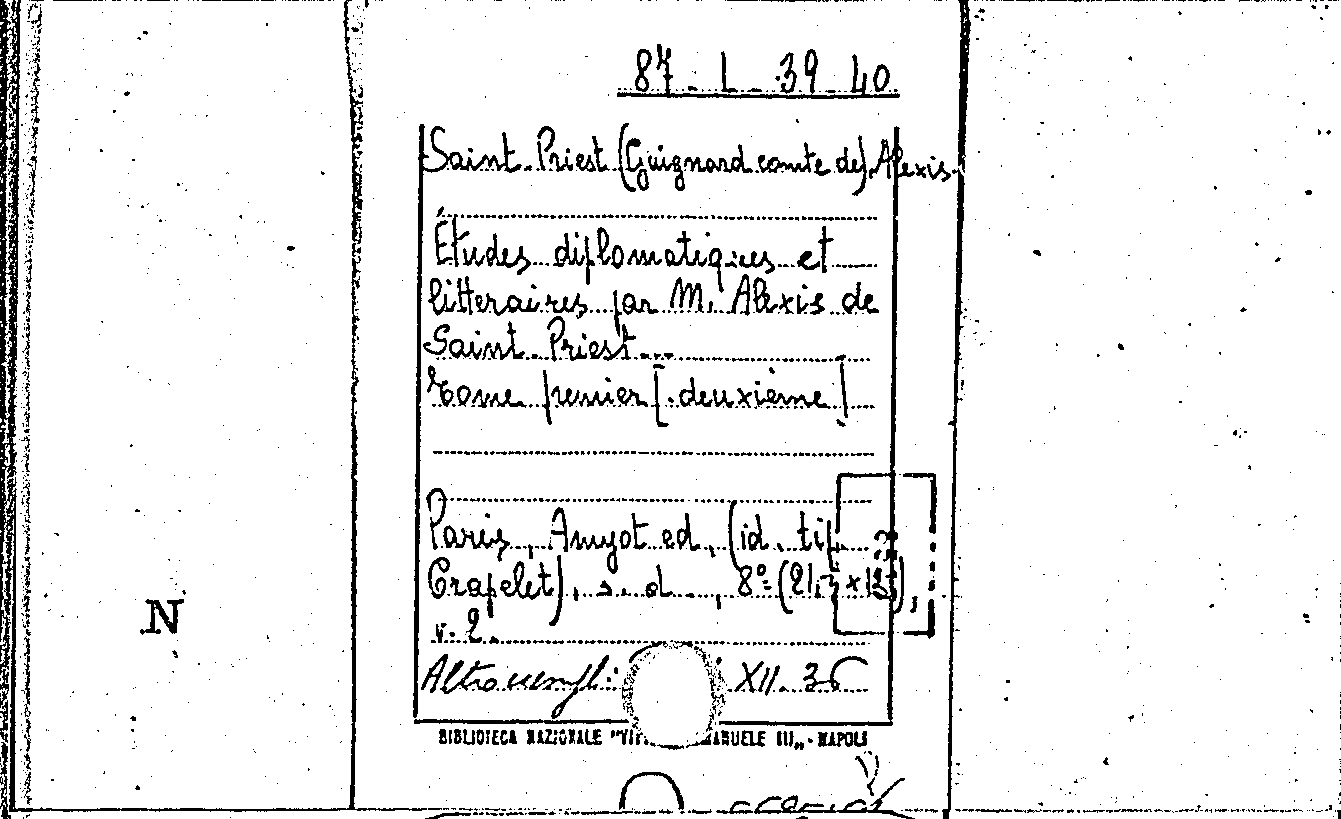 87 - L - 39 - 40.
Saint-Priest (Guignard comte de) Alexis.
Études diplomatiques et
litteraires par M. Alexis de
Saint-Priest...
Tome premier [deuxième]
Paris, Amyot ed, (id. tip.
Crapelet), s. d., 8º (21,5 x
v. 2.
Altro esempl:
XII. 36
BIBLIOTECA NAZIONALE "VIT MANUELE III„ - NAPOLI
N